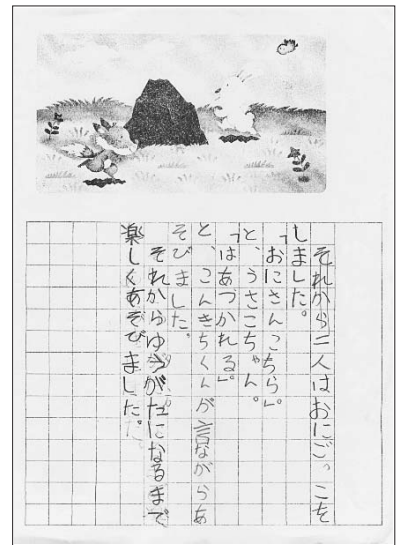 それから二人はおにごっこを
しました。
「おにさんこちら」。
と、うさこちゃん。
「はあづかれる」。
と、こんきちくんが言ながらあ
そびました。
それからゆうがたになるまで
楽しくあそびました。